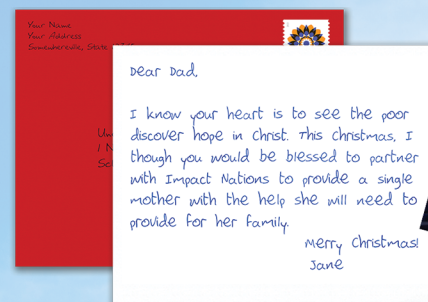 Your Name
Your Address
Somewhersville, State
Dear Dad,
I know your heart is to see the poor
discover hope in Christ. This Christmas, I
though you would be blessed to partner
with Impact Nations to provide a single
mother with the help she will need to
provide for her family.
Merry Christmas!
Jane